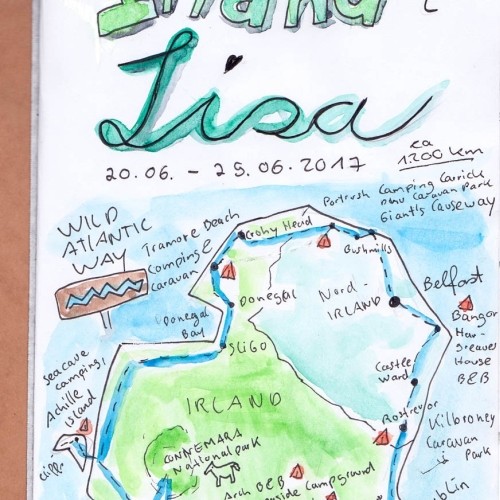 Irland
Lisa
20.06. – 25.06.2017
ca
1200 km
WILD
ATLANTIC
WAY
Tramore Beach
Camping e
Caravan
Crohy Head
Portrush Camping Carrick
Dhu Caravan Park
Giant's Causeway
Bushmills
Nord-
IRLAND
Belfast
Bangor
Hargreaves
House
B&B
Donegal
Donegal
Bay
SLIGO
Castle
Ward
Rostrevor
Kilbroney
Caravan
Park
seacave
camping,
Achille
Island
Cliffs
IRLAND
CONNEMARA
Nationalpark
Arch B&B
side Campground
blin